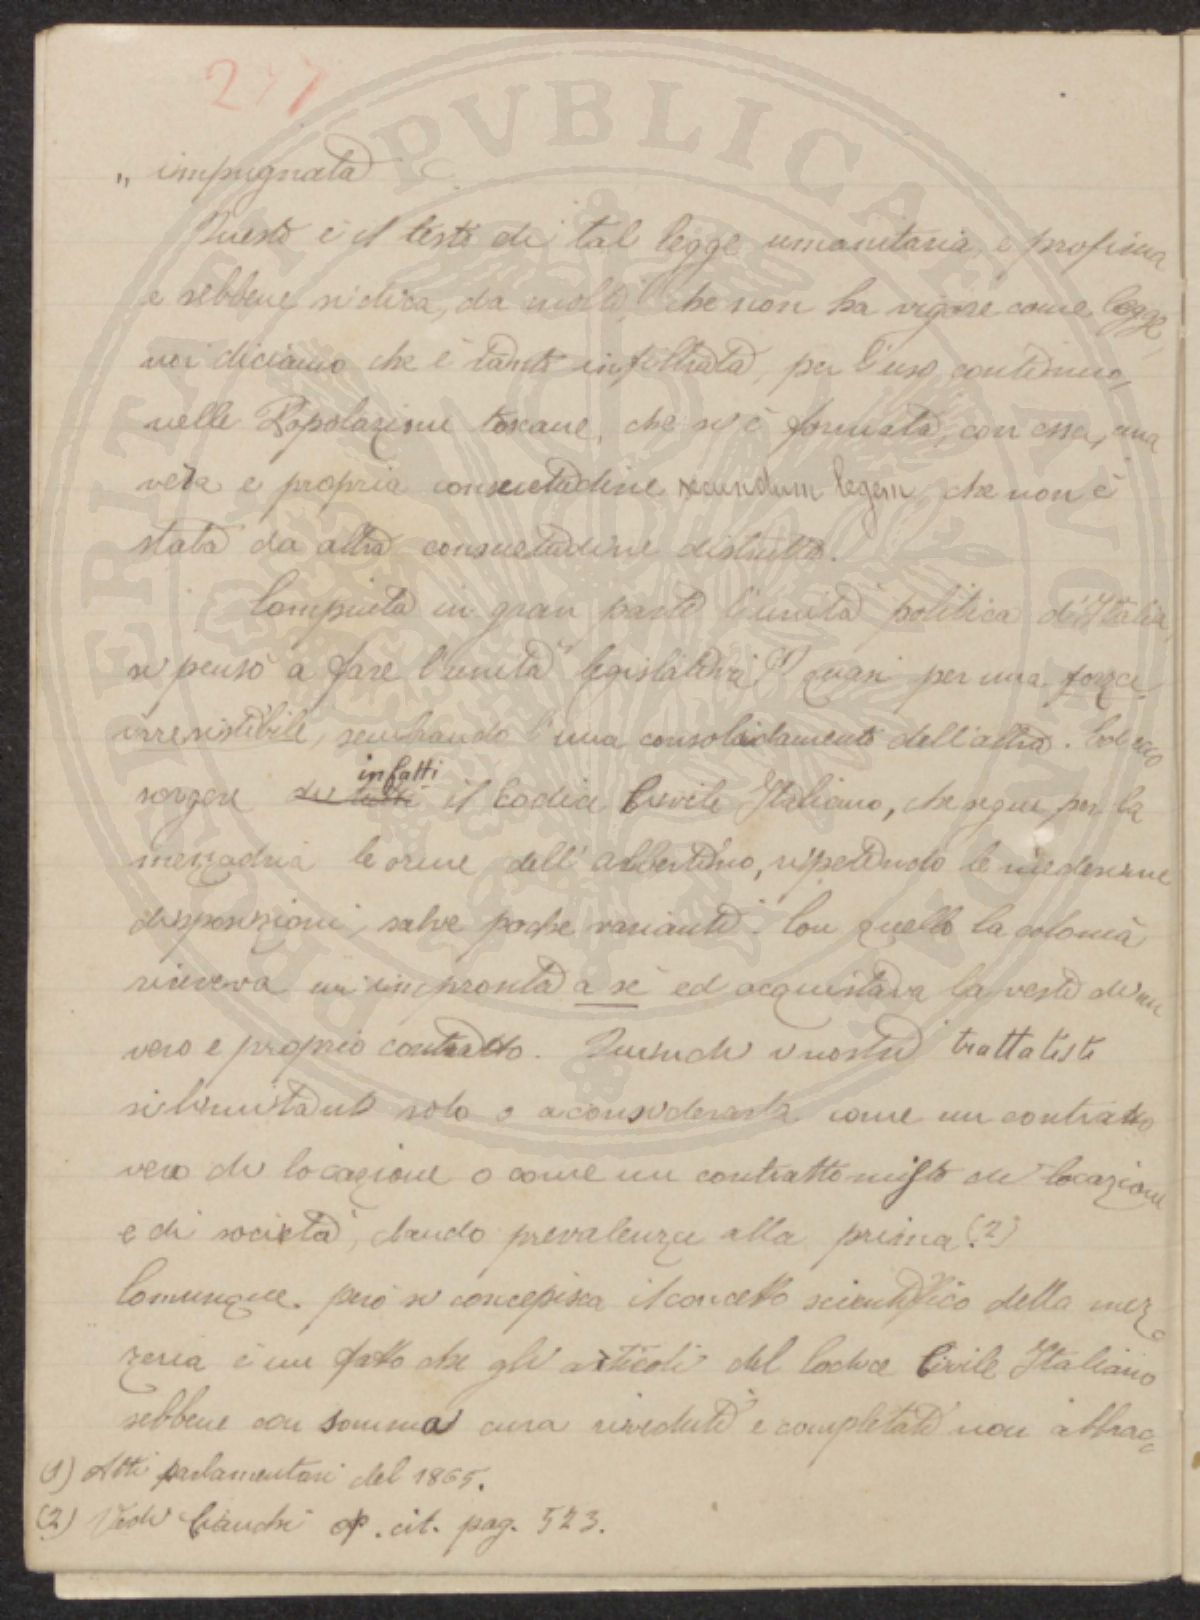 277
„ impugnata
Questo è il testo di tal legge umanitaria, e
e sebbene si dica, da molti, che non ha vigore come legge,
noi diciamo che è tanto infiltrata, per l'uso continuo,
nelle Popolazioni toscane, che si è formata, con essa, una
vera e propria consuetudine secundum legem, che non è
stata da altra consuetudine distrutta.
Compiuta in gran parte l'unità politica d'Italia,
si pensò a fare l'unità legislativa (1) quasi per una forza
irresistibile, sembrando l'una consolidamento dell'altra.
sorgere infatti il Codice Civile Italiano, che segue per la
mezzadria le orme dell'Albertino, ripetendo le medesime
disposizioni, salve poche varianti. Con quello la colonia
riceveva un'impronta a sè ed acquistava la veste di un
vero e proprio contratto. Quindi i nostri trattatisti
si limitano solo o a considerarla come un contratto
vero di locazione o come un contratto misto di locazione
e di società, dando prevalenza alla prima. (2)
Comunque però si concepisca il concetto scientifico della mez-
zeria è un fatto che gli articoli del Codice Civile Italiano
sebbene con somma cura riveduti e completati non abbrac-
(1) Atti parlamentari del 1865.
(2) Vedi Bianchi op. cit. pag. 523.
REI PVBLICAE ITALICAE